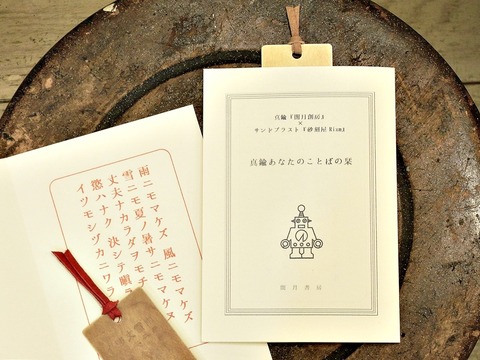 真鍮『閏月創房』
×
サンドブラスト『砂刻屋Rium』
真鍮あなたのことばの栞
閏月書房
雨ニモマケズ 風ニモマケズ
雪ニモ夏ノ暑サニモマケヌ
丈夫ナカラダヲモチ
慾ハナク 決シテ瞋ラ
イツモシヅカニワラ